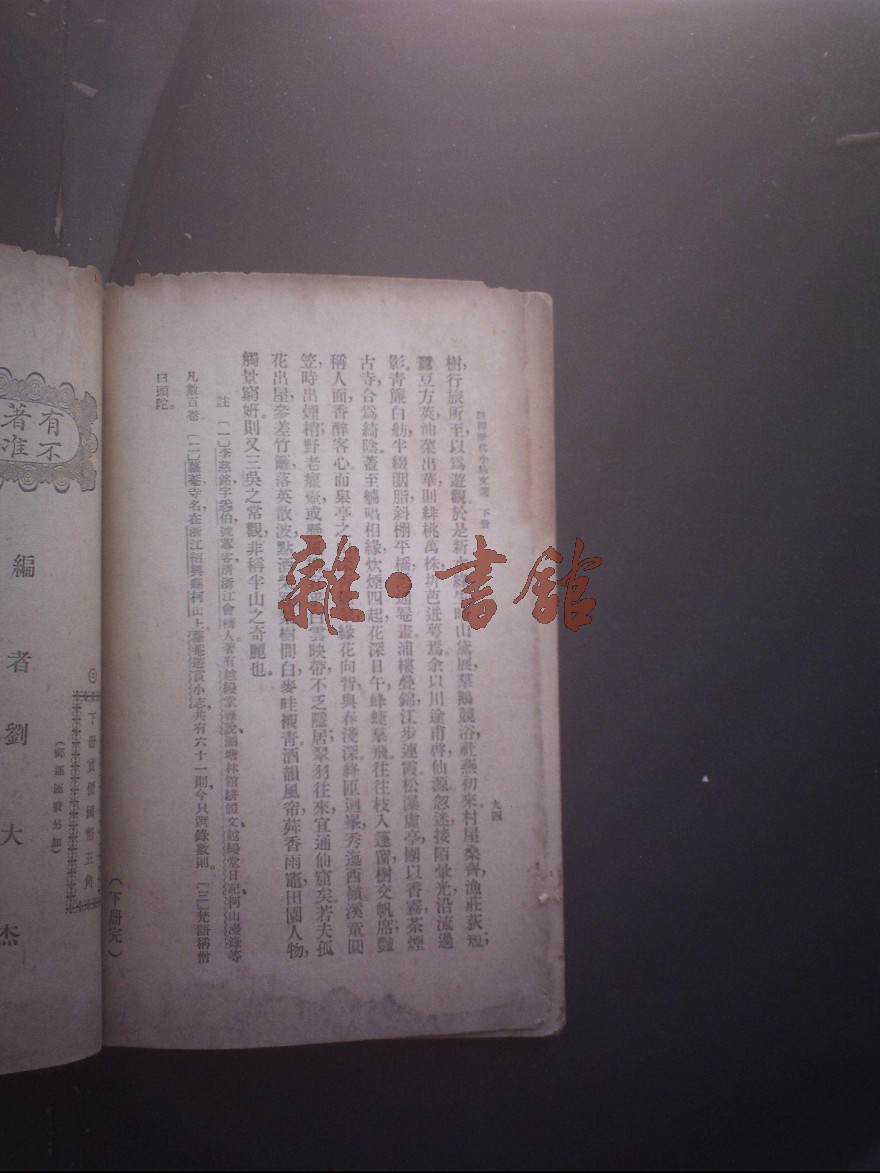 註釋歷代小品文選 下册
九四
樹,行旅所至以爲遊觀於是新山黛展翠鵝競浴社燕初來村屋桑齊漁莊荻短;
蠶豆方莢油菜出華則緋桃萬株圻芭迸蕚焉余以川途甫啓仙源忽迷接陌暈光沿流過
影。青簾白舫半綴胭脂斜棚平橋通罨畫浦樓疊錦江步連霞松瀑盧亭團以香霧茶煙
古寺合爲綺陰蓋至艣唱相緣炊煙四起花深日午蜂蝶羣飛往往枝入篷窗樹交帆席豔
稱人面香醉客心而皋亭之緣花向背與春淺深絳匝迴峯秀迤西嶺溪童圓
笠,時出煙梢野老癭瓢或懸白雲映帶不乏隱居翠羽往來宜通仙窟矣若夫孤
花出屋,參差竹籬落英散波點酒樹間白麥畦複靑酒韻風帘舜香雨竈田園人物,
觸景窮妍則又三吳之常觀非稱半山之奇麗也。
註 〔一〕李慈銘,字㤅伯,號蓴客,淸浙江會稽人。著有越縵堂雜說、湖塘林館駢體文、越縵堂日記、柯山漫錄等
凡數百卷 〔二〕蘿菴寺名在浙江紹興縣柯山上。蘿菴遊賞小志共有六十一則今只選錄數則。〔三〕梵語稱僧
曰頭陀。
(下册完)
有不
著准
編者劉大杰
下册實價國幣五角
(郵運匯費另加)
雜·書館